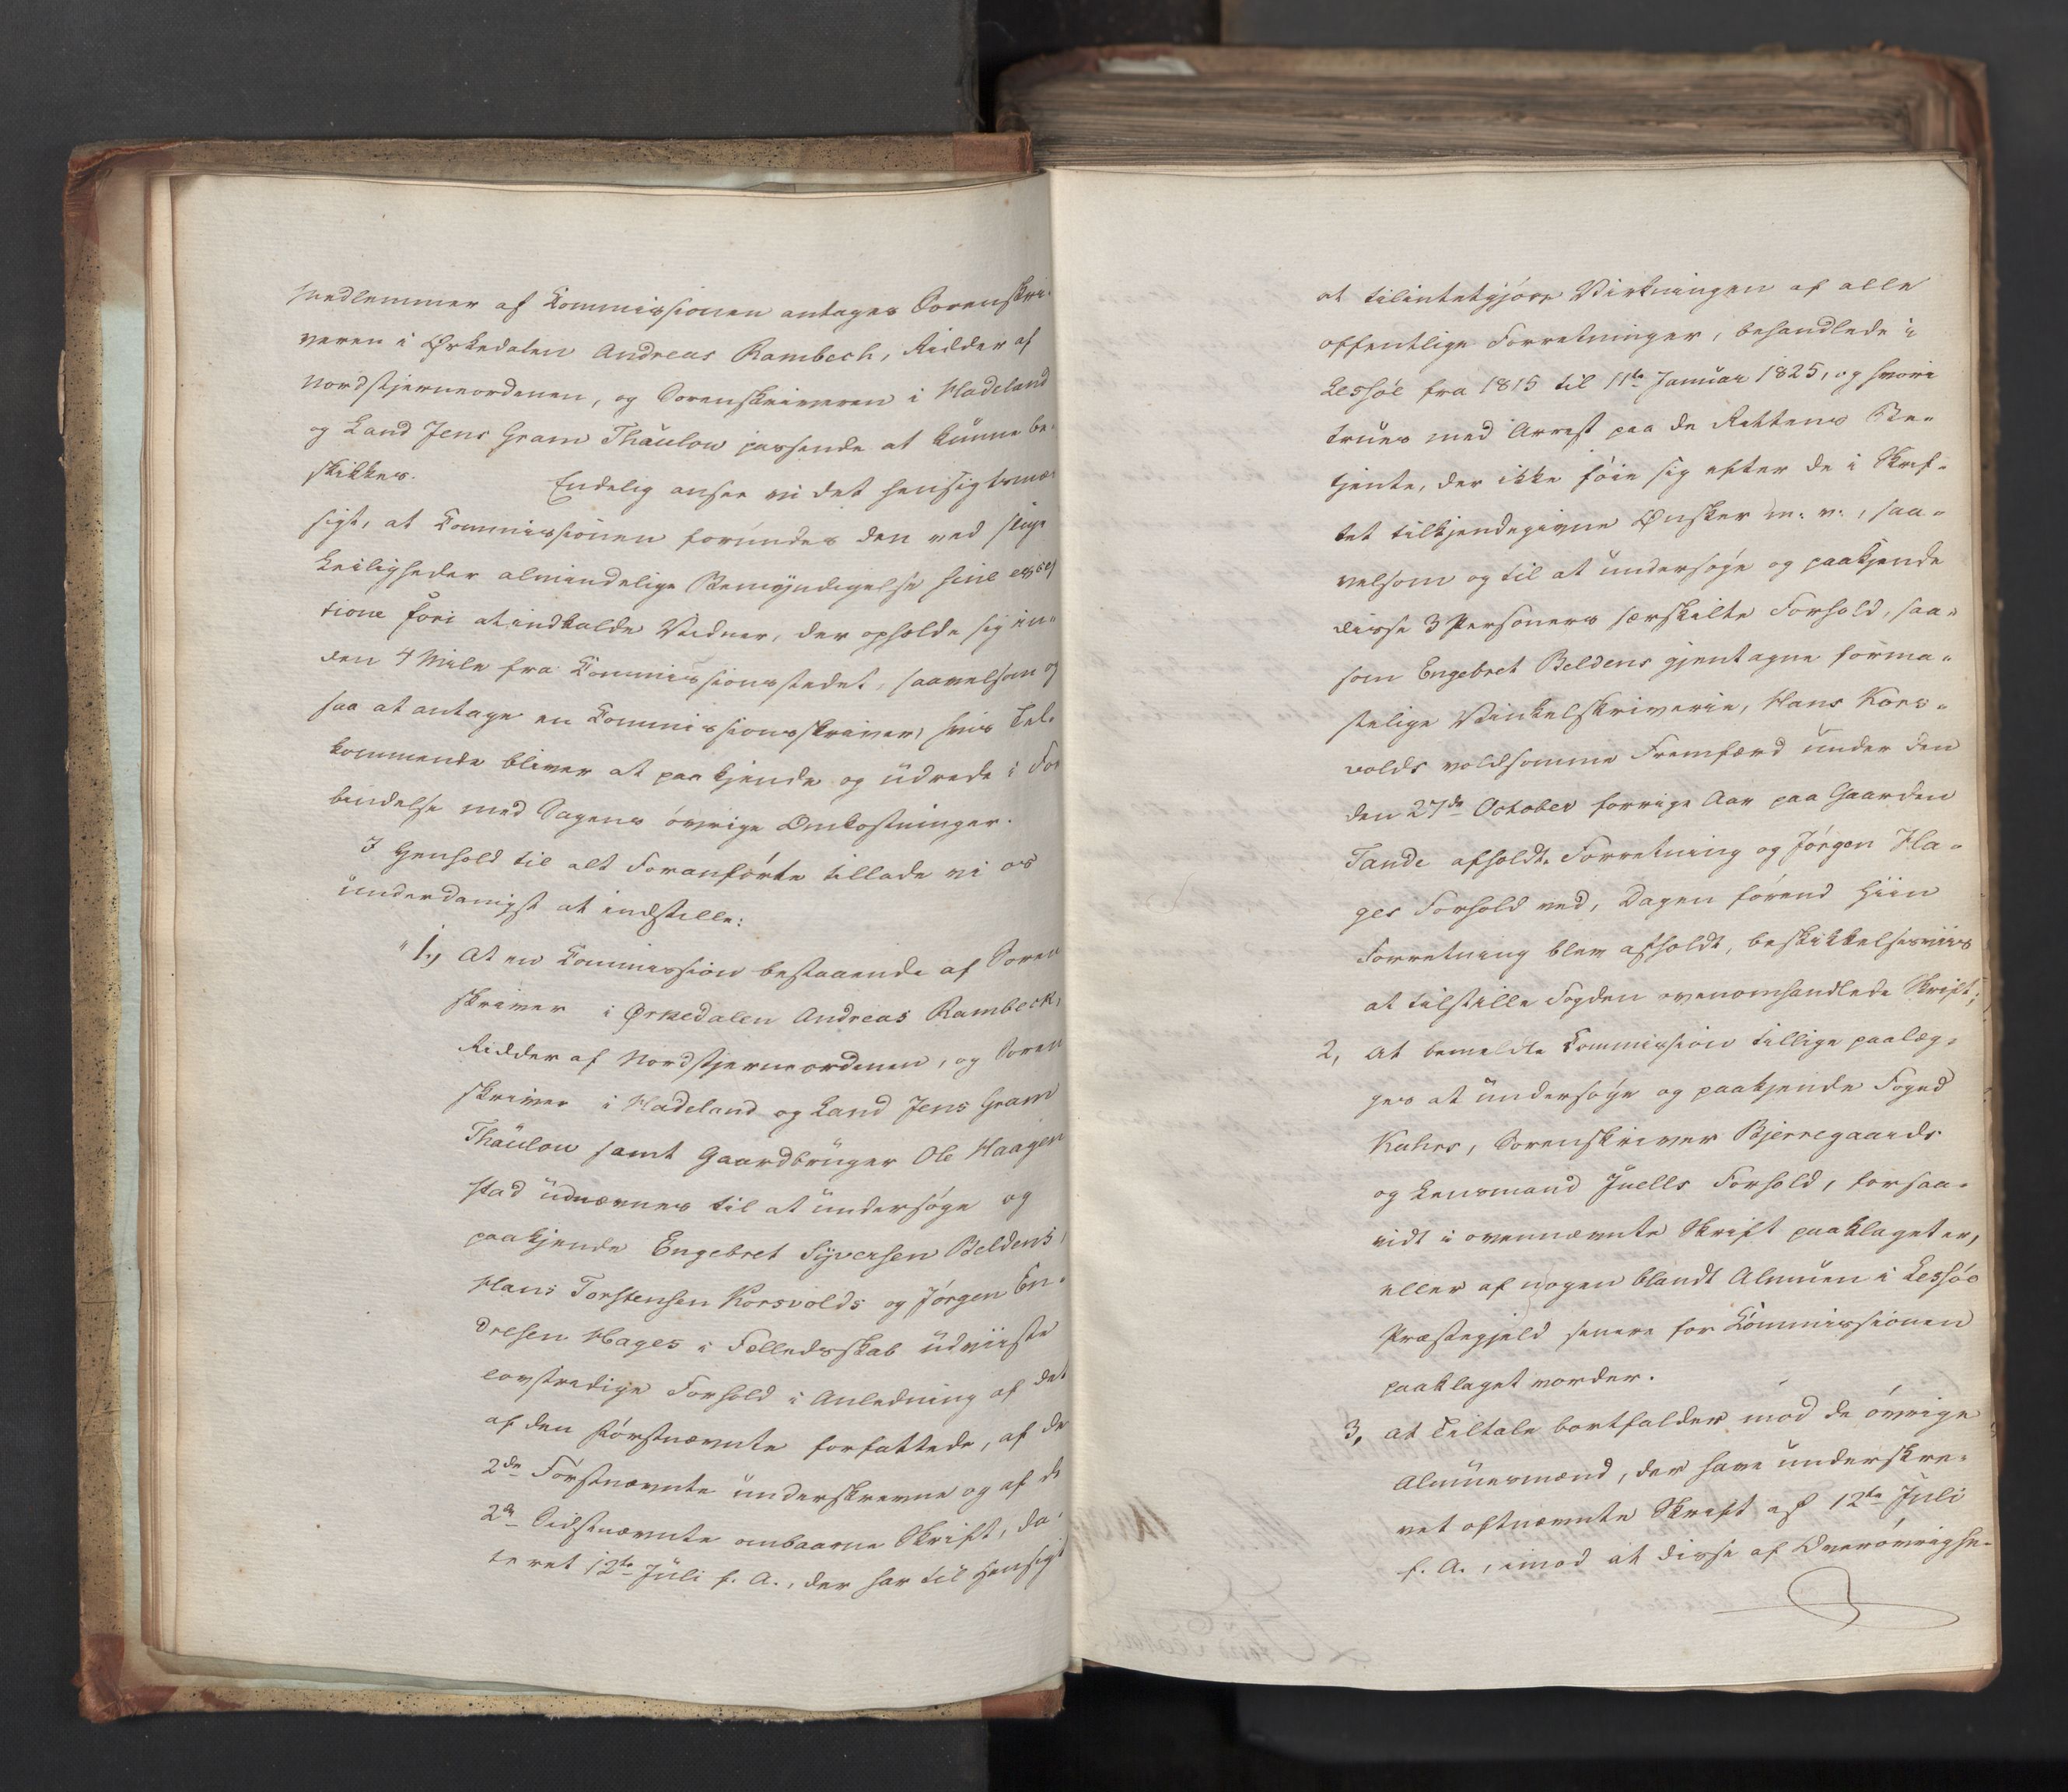 Medlemmer af Commissionen antages Sorenskri-
veren i Ørkedalen Andreas Rambech, Ridder af
Nordstjerneordenen, og Sorenskriveren i Hadeland
og Land Jens Gram Thaulow passende at kunne be-
skikkes. Endelig ansee vi det hensigtsmæs-
sigt, at Commissionen forundes den ved slige
Leiligheder almindelige Bemyndigelse sine excep-
tione fori at indkalde Vidner, der opholde sig in-
den 4 Mile fra Commissionsstedet, saavelsom og-
saa at antage en Commissionsskriver, hvis Til-
kommende bliver at paakjende og udrede i For-
bindelse med Sagens øvrige Omkostninger.
I Henhold til alt Foranførte tillade vi os
underdanigst at indstille:
" 1., At en Commission bestaaende af Soren
skriver i Ørkedalen Andreas Rambeck,
Ridder af Nordstjerneordenen, og Soren
skriver i Hadeland og Land Jens Gram
Thaulow samt Gaardbruger Ole Haagen
stad udnævnes til at undersøge og
paakjende Engebret Syversen Beldens,
Hans Torstensen Korsvolds og Jørgen En-
dresen Hages i Fælledsskab udviiste
lovstridige Forhold i Anledning af det
af den Førstnævnte forfattede, af de
2de Førstnævnte underskrevne og af de
2de Sidstnævnte ombaarne Skrift, da-
teret 12te Juli f. A., der har til Hensigt
at tilintetgjøre Virkningen af alle
offentlige Forretninger, behandlede i
Lessøe fra 1815 til 11te Januar 1825, og hvori
trues med Arrest paa de Rettens Be-
tjente, der ikke føie sig efter de i Skrif-
tet tilkjendegivne Ønsker m: v:, saa-
velsom og til at undersøge og paakjende
disse 3 Personers særskilte Forhold, saa-
som Engebret Beldens gjentagne forma-
stelige Vinkelskriverie, Hans Kors-
volds voldsomme Fremfærd under den
den 27de October forrige Aar paa Gaarden
Tande afholdte Forretning og Jørgen Ha-
ges Forhold ved, Dagen førend hiin
Forretning blev afholdt, beskikkelsesviis
at tilstille Fogden ovenomhandlede Skrift;
2, at bemeldte Commission tillige paalæg-
ges at undersøge og paakjende Foged
Kuhrs, Sorenskriver Bjerregaards
og Lensmand Juells Forhold, forsaa-
vidt i ovennævnte Skrift paaklaget er,
eller af nogen blandt Almuen i Lessøe
Præstegjeld senere for Commissionen
paaklaget vorder.
3, at Tiltale bortfalder mod de øvrige
Almuesmænd, der have underskre-
vet oftnævnte Skrift af 12te Juli
f. A., imod at disse af Overøvrighe-